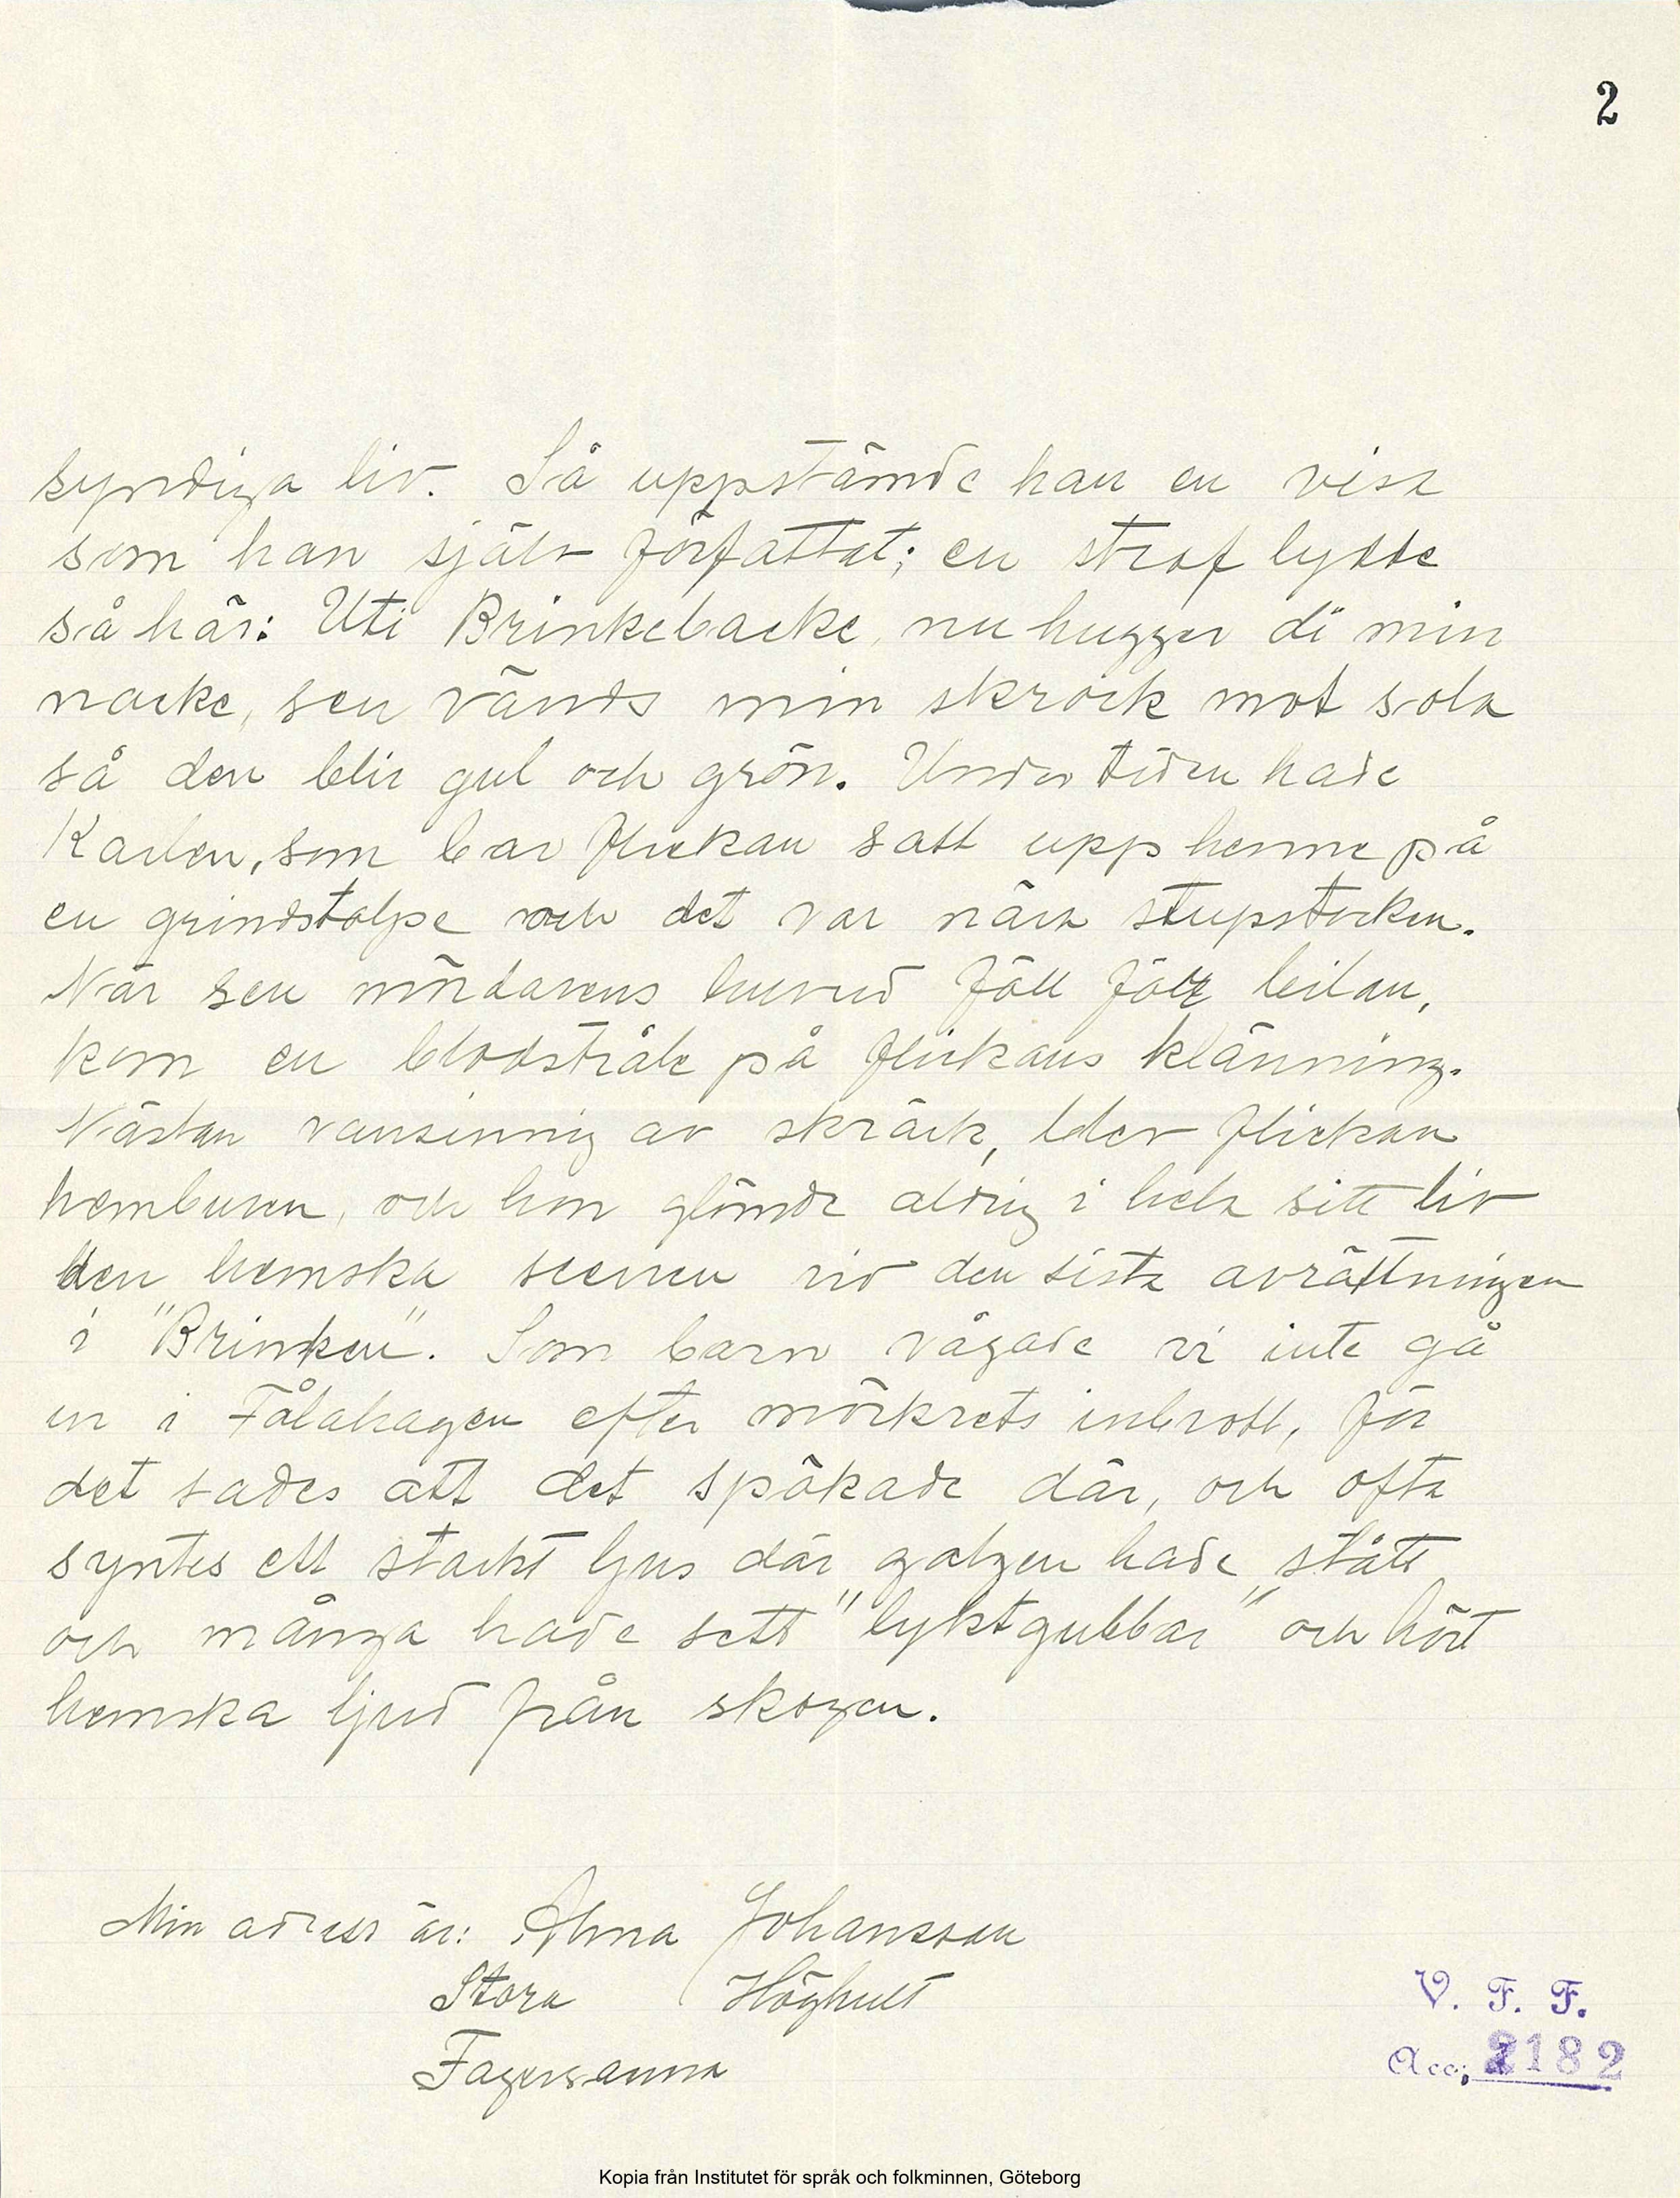 2
syndiga liv. Så uppstämde han en visa
som han själv författat; en strof lydde
så här: Uti Brinkebacke, nu hugger di min
nacke, sen vänds min skrock mot sola
så den blir gul och grön. Under tiden hade
Karlen, som bar flickan satt upp henne på
en grindstolpe och det var nära stupstocken.
När sen mördarens huvud föll för bilan,
kom en blodstråle på flickans klänning.
Nästan vansinnig av skräck, blev flickan
hemburen, och hon glömde aldrig i hela sitt liv
den hemska scenen vid den sista avrättningen
i "Brinken". Som barn vågade vi inte gå
in i Fålahagen efter mörkrets inbrott, för
det sades att det spökade där, och ofta
syntes ett starkt ljus där galgen hade stått
och många hade sett "lyktgubbar" och hört
hemska ljud från skogen.
Min adress är: Alma Johansson
Stora Höghult
Fagersanna
V. F. F.
Acc; 2182
Kopia från Institutet för språk och folkminnen, Göteborg